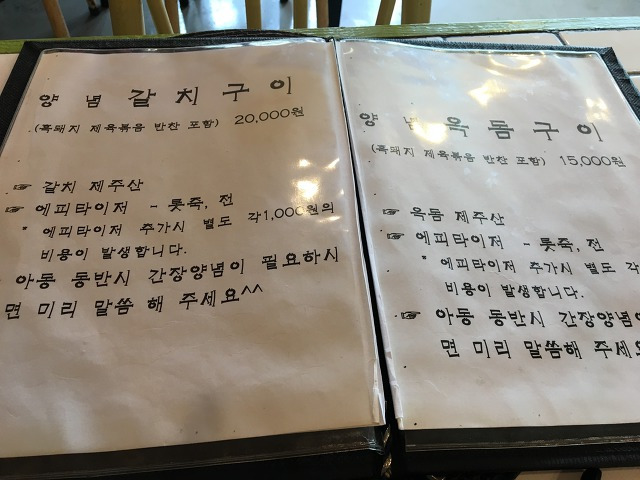 양념 갈치구이
(흑돼지 제육볶음 반찬 포함) 20,000원
☞ 갈치 제주산
☞ 에피타이저 - 톳죽, 전
* 에피타이저 추가시 별도 각1,000원의
비용이 발생합니다.
아동 동반시 간장양념이 필요하시
면 미리 말씀 해 주세요^^
양념 옥돔구이
(흑돼지 제육볶음 반찬 포함) 15,000원
☞ 옥돔 제주산
☞ 에피타이저 - 톳죽, 전
* 에피타이저 추가시 별도 각
비용이 발생합니다.
☞ 아동 동반시 간장양념이
면 미리 말씀해 주세요